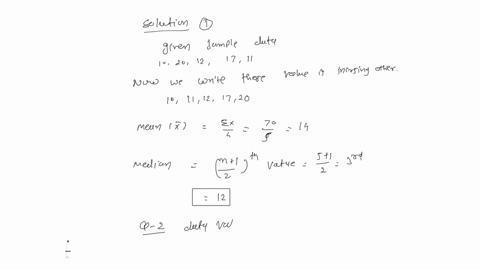 Solution ①
given sample data
10, 20, 12, 17, 11
Now we write these value in order.
10, 11, 12, 17, 20
mean (x̄) = Σx/4 = 70/5 = 14
median = (n+1/2)^th value = 5+1/2 = 3rd
= 12
Q-2 duty val